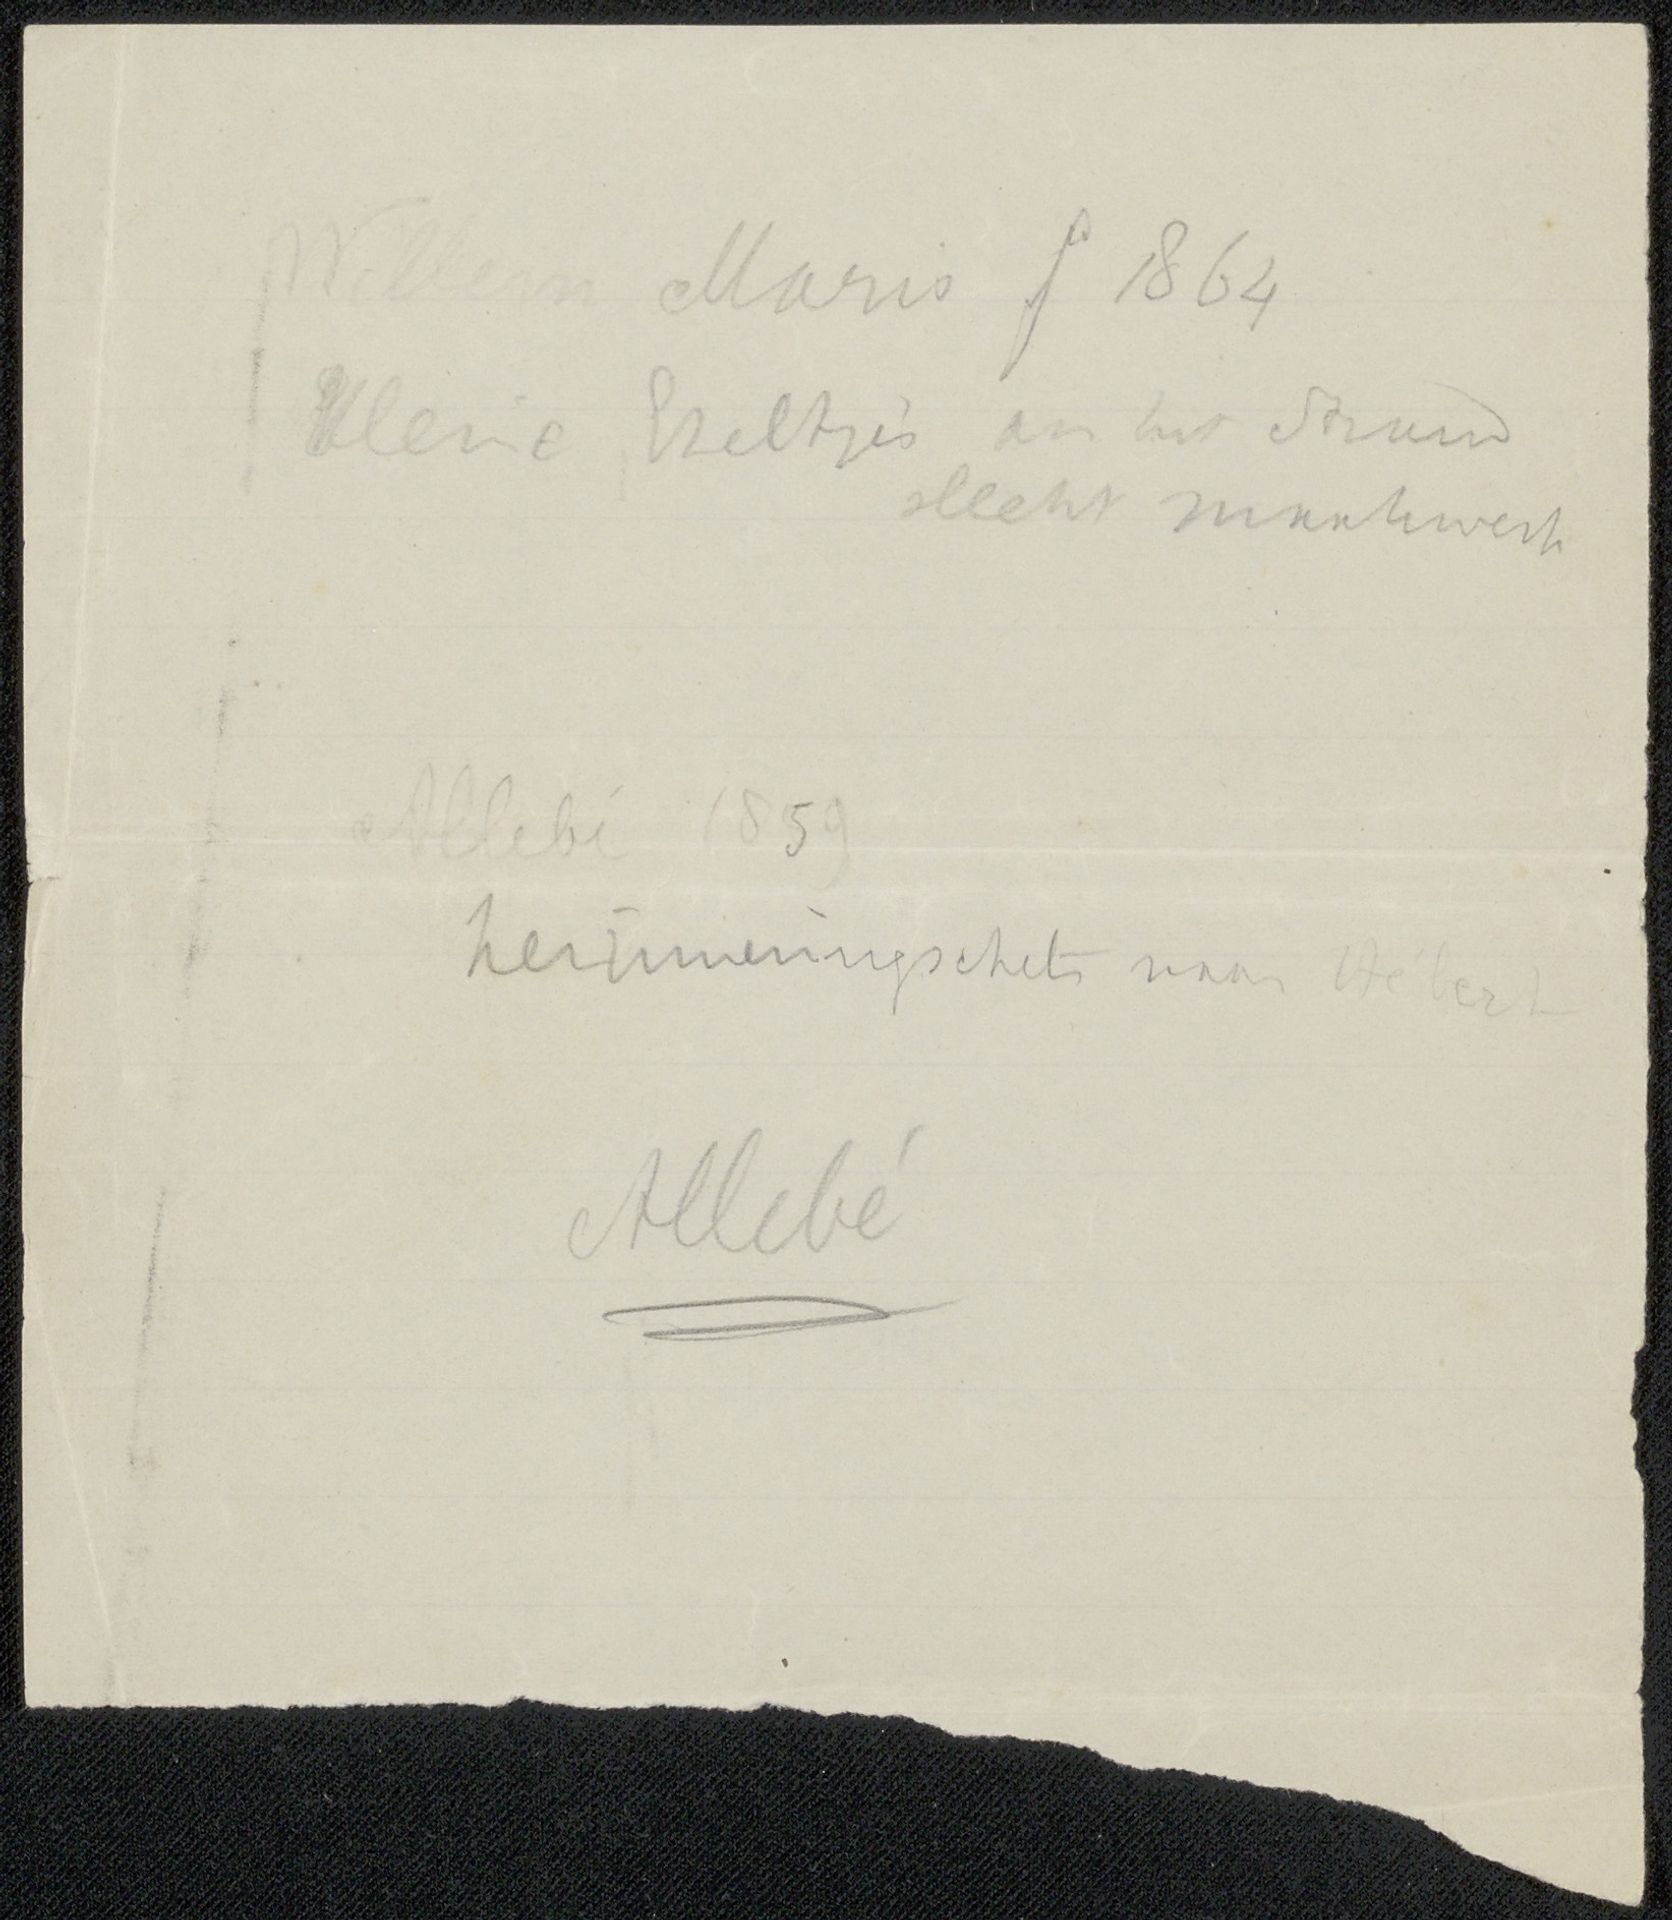 Willem Maris f 1864
Kleine Ezeltjes aan het Strand
slecht maakwerk
Allebé 1859
herinneringschets naar Hébert
Allebé